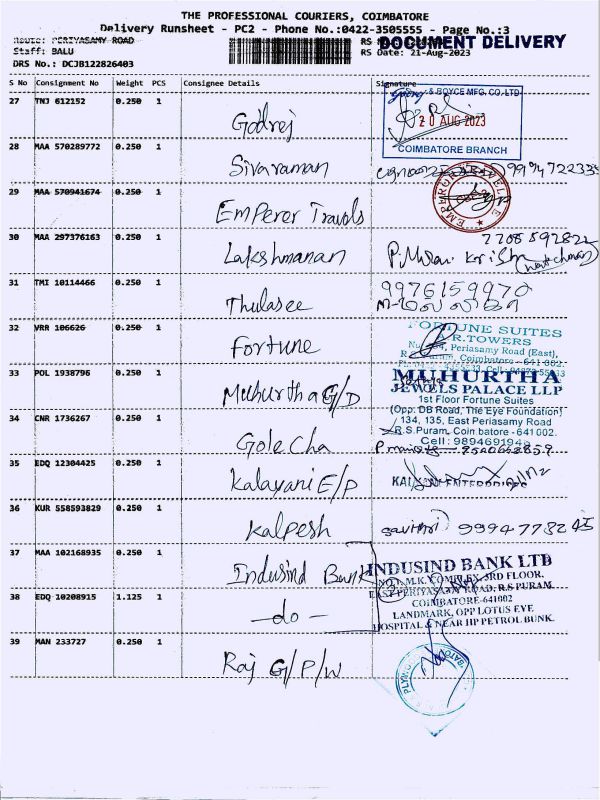 THE PROFESSIONAL COURIERS, COIMBATORE
Delivery Runsheet - PC2 - Phone No.:0422-3505555 - Page No.:3
Route: PERIYASAMY ROAD
DOCUMENT DELIVERY
Staff: BALU
RS Date: 21-Aug-2023
DRS No.: DCJB122826403
S No Consignment No Weight PCS Consignee Details Signature
27 TNJ 612152 0.250 1 Godrej
Godrej & BOYCE MFG. CO. LTD
20 AUG 2023
COIMBATORE BRANCH
28 MAA 570289772 0.250 1 Sivaraman
29 MAA 570941674 0.250 1 Emperer Travels
30 MAA 297376163 0.250 1 Lakshmanan
(watchman)
31 TMI 10114466 0.250 1 Thulasee 9976159970
32 VRR 106626 0.250 1 Fortune
FORTUNE SUITES
A.R. TOWERS
Periasamy Road (East),
Coimbatore - 641 002.
33 POL 1938796 0.250 1 Muhurtha G/D
MUHURTHA
JEWELS PALACE LLP
1st Floor Fortune Suites
(Opp. DB Road, The Eye Foundation)
134, 135, East Periasamy Road
R.S.Puram, Coimbatore - 641 002.
Cell : 9894691946
34 CNR 1736267 0.250 1 Golecha
35 EDQ 12304425 0.250 1 Kalayani E/P
36 KUR 558593829 0.250 1 Kalpesh savithri
37 MAA 102168935 0.250 1 Indusind Bank
INDUSIND BANK LTD
NO.1, M.K. COMPLEX, 3RD FLOOR,
EAST PERIYASAMY ROAD, R.S PURAM,
COIMBATORE-641002
LANDMARK, OPP LOTUS EYE
HOSPITAL & NEAR HP PETROL BUNK.
38 EDQ 10208915 1.125 1 - do -
39 MAN 233727 0.250 1 Raj G/P/W